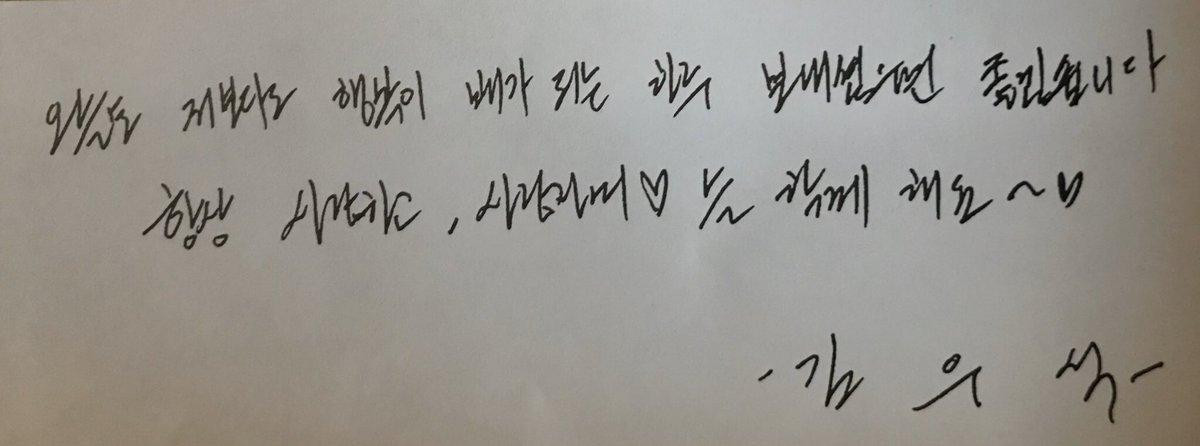 저보다도 행복이 배가 되는 하루 보내셨으면 좋겠습니다
항상 사랑하는, 사랑하며♡ 함께 해요~♡
-김우석-